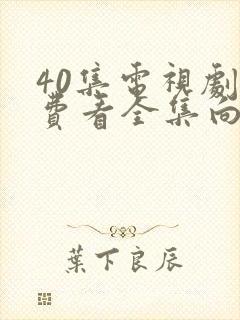 40集電視劇
費看全集向
葉下良辰